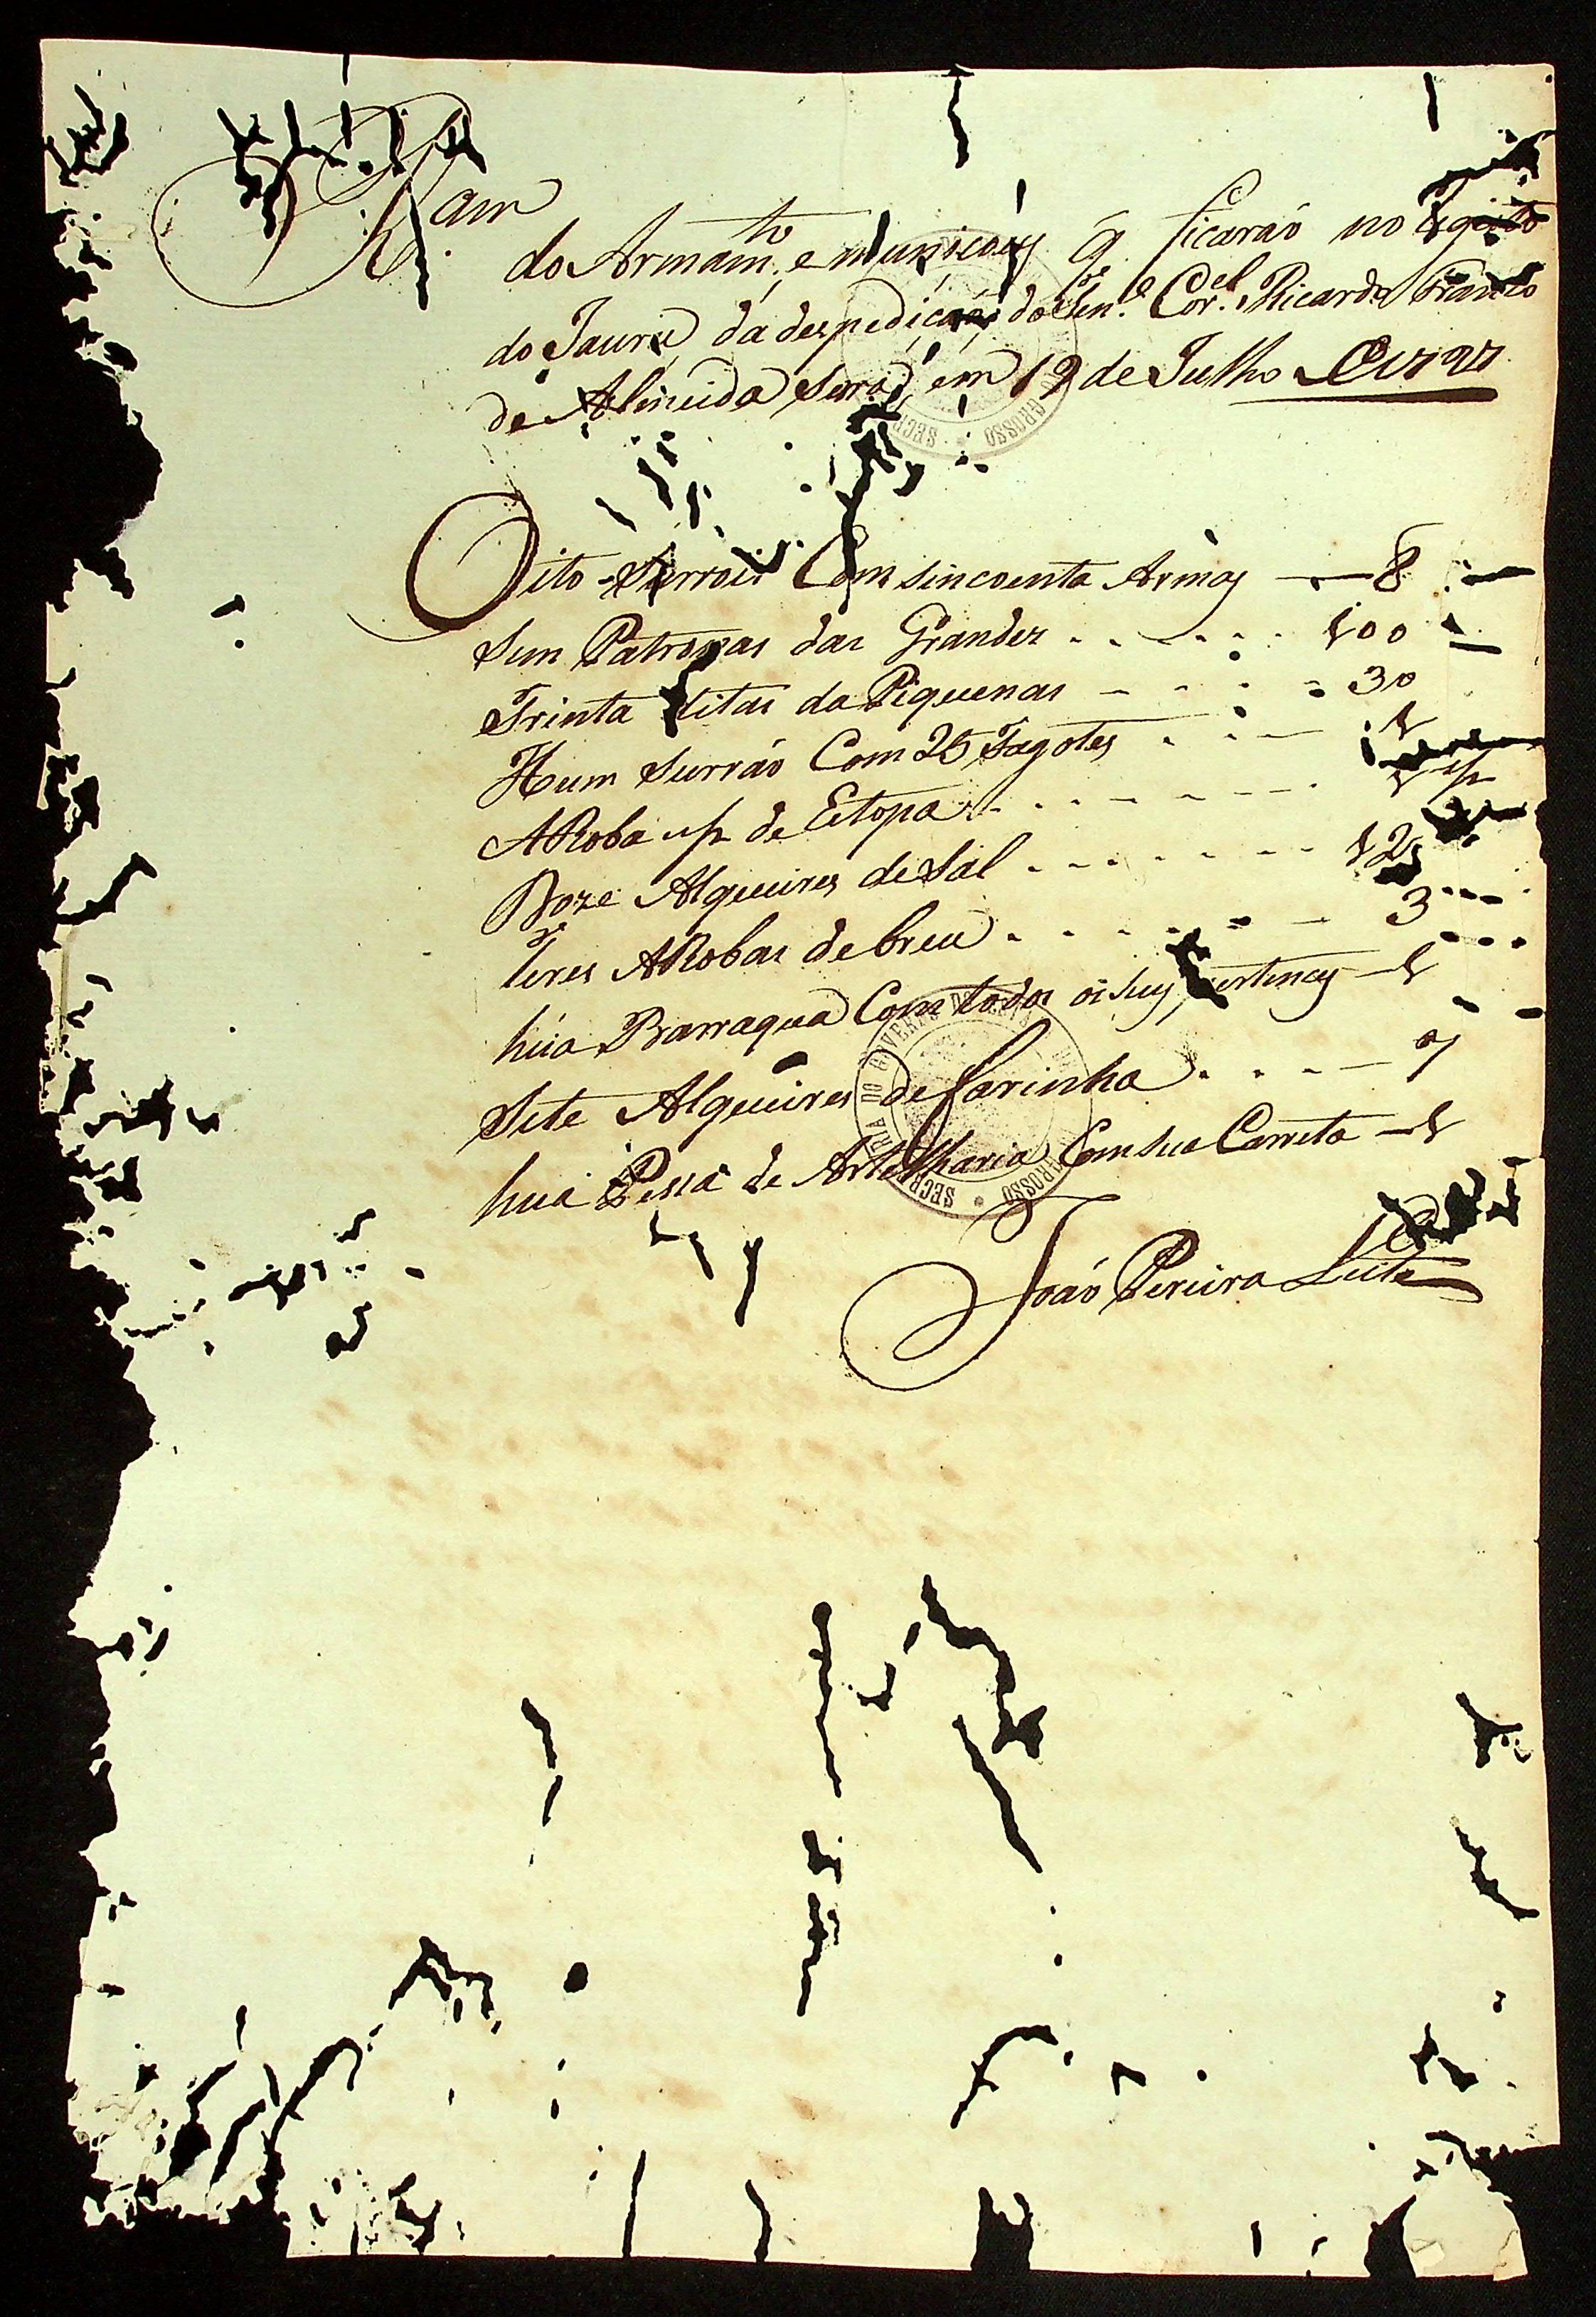 Ram
do Armam.to, e Municoeñs q ficaraó no Registo
do Jauru, da despediçaó do Ten.e Cor.el Ricardo Franco
de Almeida Serra, em 19 de Julho
Oito Surrois Com sincoenta Armas — 8
Sem Patronas das Grandes . . . . 100
Trinta ditas da Piquenas - - - - 30
Hum Surraó Com 25 Fagotes . . - 1
ARoba e ½ de Estopa . . . . . 1 ½
Doze Alqueires de Sal . . . . . 12
Teres ARobas de breu . . . . . 3
húa Barraqua Com todos os seus pertences — 1
Sete Alqueires de farinha . . . — 7
huá Pessa de Artelharia Com sua Carreta — 1
João Pereira Leite
SECRETARIA DO GOVERNO GROSSO